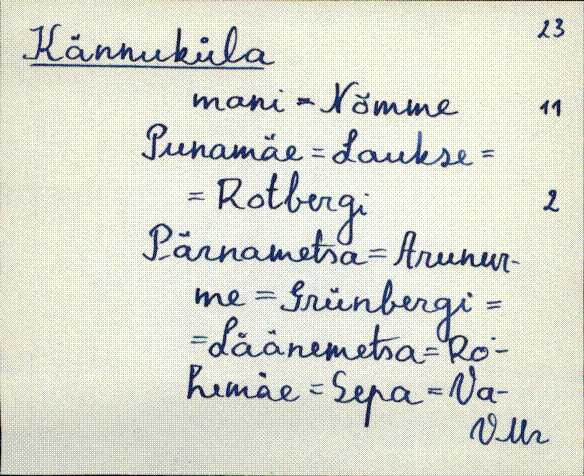 23
Kännuküla
mani = Nõmme 11
Punamäe = Laukse =
= Rotbergi 2
Pärnametsa = Arunur-
me = Grünbergi =
= Läänemetsa = Ro-
hemäe = Sepa = Va-